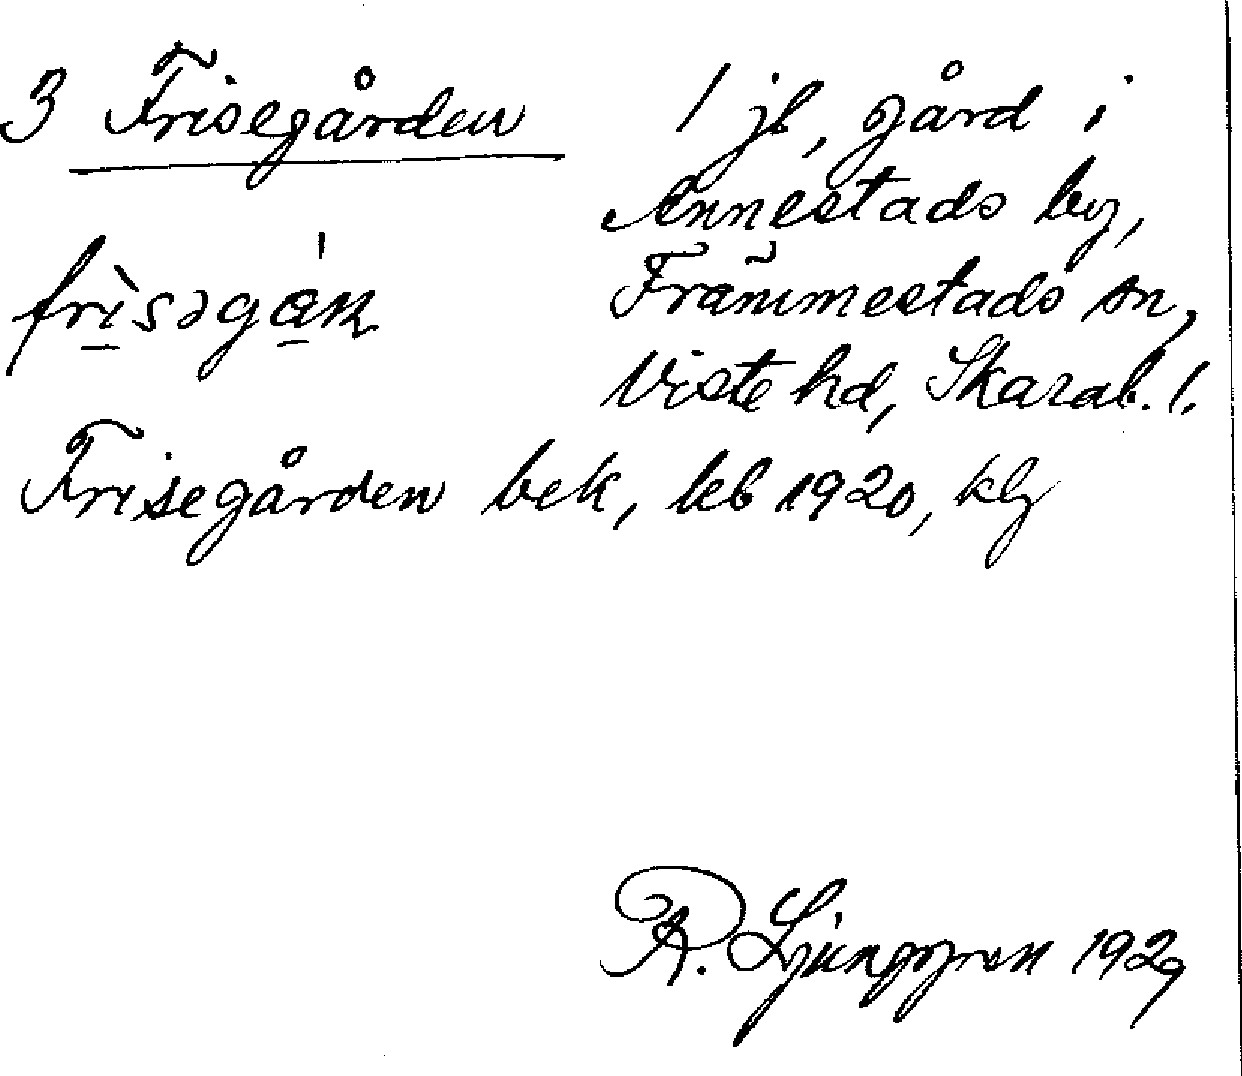 3 Frisegården 1 jb, gård i
Annestads by,
Främmestads sn,
Viste hd, Skarab. l.
Frisegården bek, leb 1920, klg
R. Ljunggren 1929